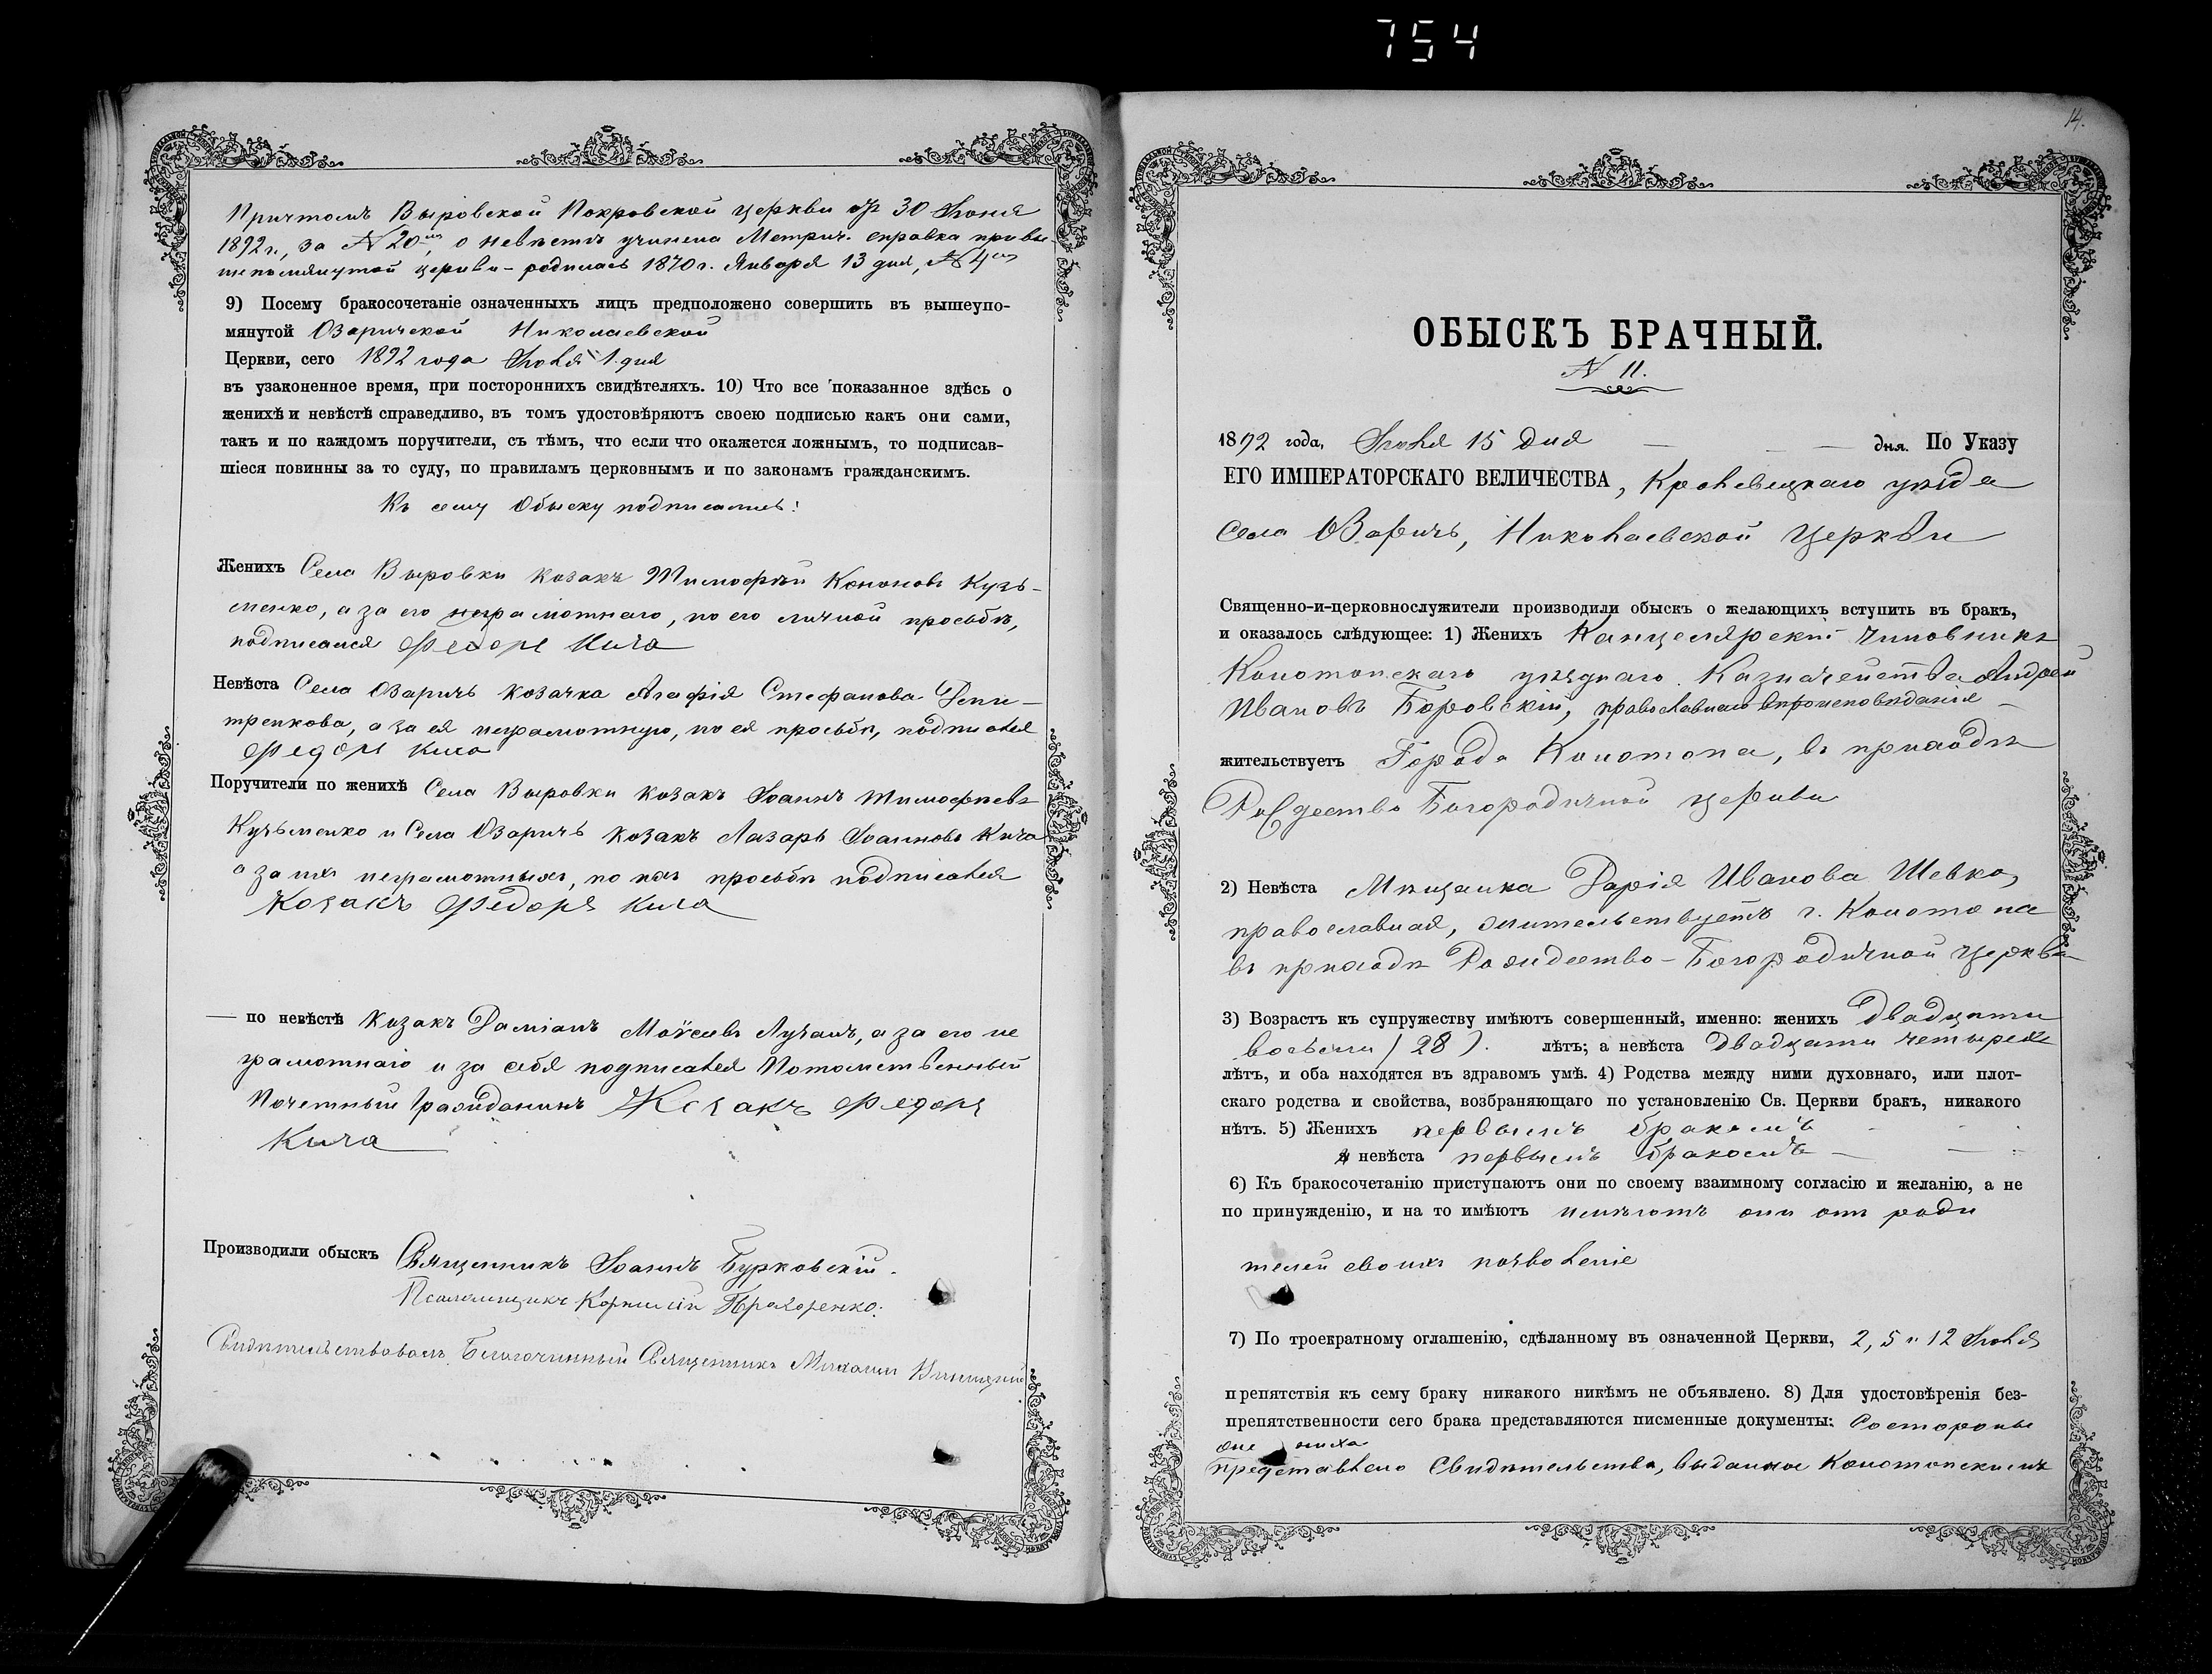 754
Причтомъ Выровской Покровской церкви отъ 30 Іюня
1892 г., за № 20мъ, о невѣстѣ учинена Метрич. справка при вы-
шепомянутой церкви - родилась 1870 г. Января 13 дня, № 4мъ
9) Посему бракосочетаніе означенныхъ лицъ предположено совершить въ вышеупо-
мянутой Озаричской Николаевской
Церкви, сего 1892 года Іюля 1 дня
въ узаконенное время, при постороннихъ свидѣтеляхъ. 10) Что все показанное здѣсь о
женихѣ и невѣстѣ справедливо, въ томъ удостовѣряютъ своею подписью какъ они сами,
такъ и по каждомъ поручители, съ тѣмъ, что если что окажется ложнымъ, то подписав-
шіеся повинны за то суду, по правиламъ церковнымъ и по законамъ гражданскимъ.
Къ сему Обыску подписались:
Женихъ Села Выровки козакъ Тимофѣй Кононовъ Кузь-
менко, а за его неграмотнаго, по его личной просьбѣ,
подписался Федоръ Кича
Невѣста Села Озаричъ козачка Агафія Стефанова
а за ея неграмотную, по ея просьбѣ, подписался
Федоръ Кича
Поручители по женихѣ Села Выровки козакъ Іоаннъ Тимофѣевъ
Кузьменко и Села Озаричъ козакъ Лазарь Іоанновъ Кича
а за ихъ неграмотныхъ, по ихъ просьбѣ подписался
Козакъ Федоръ Кича
— по невѣстѣ Козакъ Даміанъ Моѵсеевъ а за его не
грамотнаго и за себя подписался Потомственный
Почетный Гражданинъ Козакъ Федоръ
Кича
Производили обыскъ Священникъ Іоаннъ Бурковскій.
Псаломщикъ Корнилій Прохоренко.
Свидѣтельствовалъ Благочинный Священникъ Михаилъ
14.
ОБЫСКЪ БРАЧНЫЙ.
№ 11.
1892 года, Іюля 15 дня — — — дня. По Указу
ЕГО ИМПЕРАТОРСКАГО ВЕЛИЧЕСТВА, Кролевецкаго уѣзда
Села Озаричъ, Николаевской Церкви
Священно-и-церковнослужители производили обыскъ о желающихъ вступить въ бракъ,
и оказалось слѣдующее: 1) Женихъ Канцелярскій чиновникъ
Конотопскаго уѣзднаго Казначейства Андрей
Ивановъ Боровскій, православнаго вѣроисповѣданія —
жительствуетъ Города Конотопа, въ приходѣ
Рождество Богородичной церкви
2) Невѣста Мѣщанка Дарія Иванова Шевко,
православная, жительствуетъ г. Конотопа
въ приходѣ Рождество-Богородичной Церкви
3) Возрастъ къ супружеству имѣютъ совершенный, именно: женихъ двадцати
восьми (28). лѣтъ; а невѣста двадцати четырехъ
лѣтъ, и оба находятся въ здравомъ умѣ. 4) Родства между ними духовнаго, или плот-
скаго родства и свойства, возбраняющаго по установленію Св. Церкви бракъ, никакого
нѣтъ. 5) Женихъ первымъ бракомъ
а невѣста первымъ бракомъ —
6) Къ бракосочетанію приступаютъ они по своему взаимному согласію и желанію, а не
по принужденію, и на то имѣютъ имѣютъ они отъ роди
телей своихъ позволеніе
7) По троекратному оглашенію, сдѣланному въ означенной Церкви, 2, 5 и 12 Іюля
препятствія къ сему браку никакого никѣмъ не объявлено. 8) Для удостовѣренія без-
препятственности сего брака представляются писменные документы: Состороны
жениха
представлено Свидѣтельство, выданное Конотопскимъ